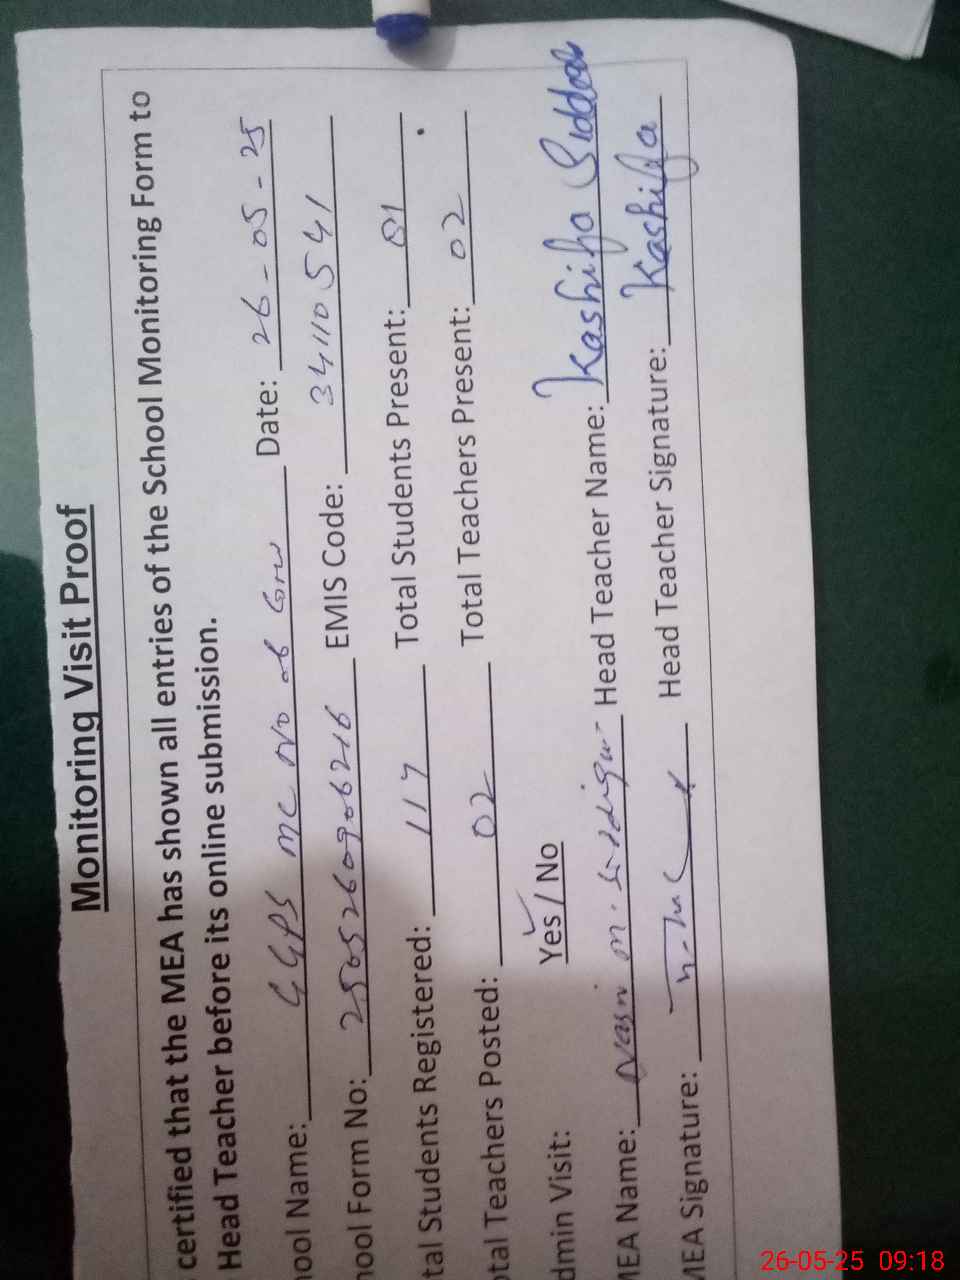 Monitoring Visit Proof
certified that the MEA has shown all entries of the School Monitoring Form to
Head Teacher before its online submission.
hool Name: GGPS MC No Date: 26-05-25
hool Form No: 2505260906216 EMIS Code: 34110541
tal Students Registered: 117 Total Students Present: 81
otal Teachers Posted: 02 Total Teachers Present: 02
dmin Visit: Yes / No
MEA Name: m. Head Teacher Name: Kashifa
MEA Signature: Head Teacher Signature: Kashifa
26-05-25 09:18